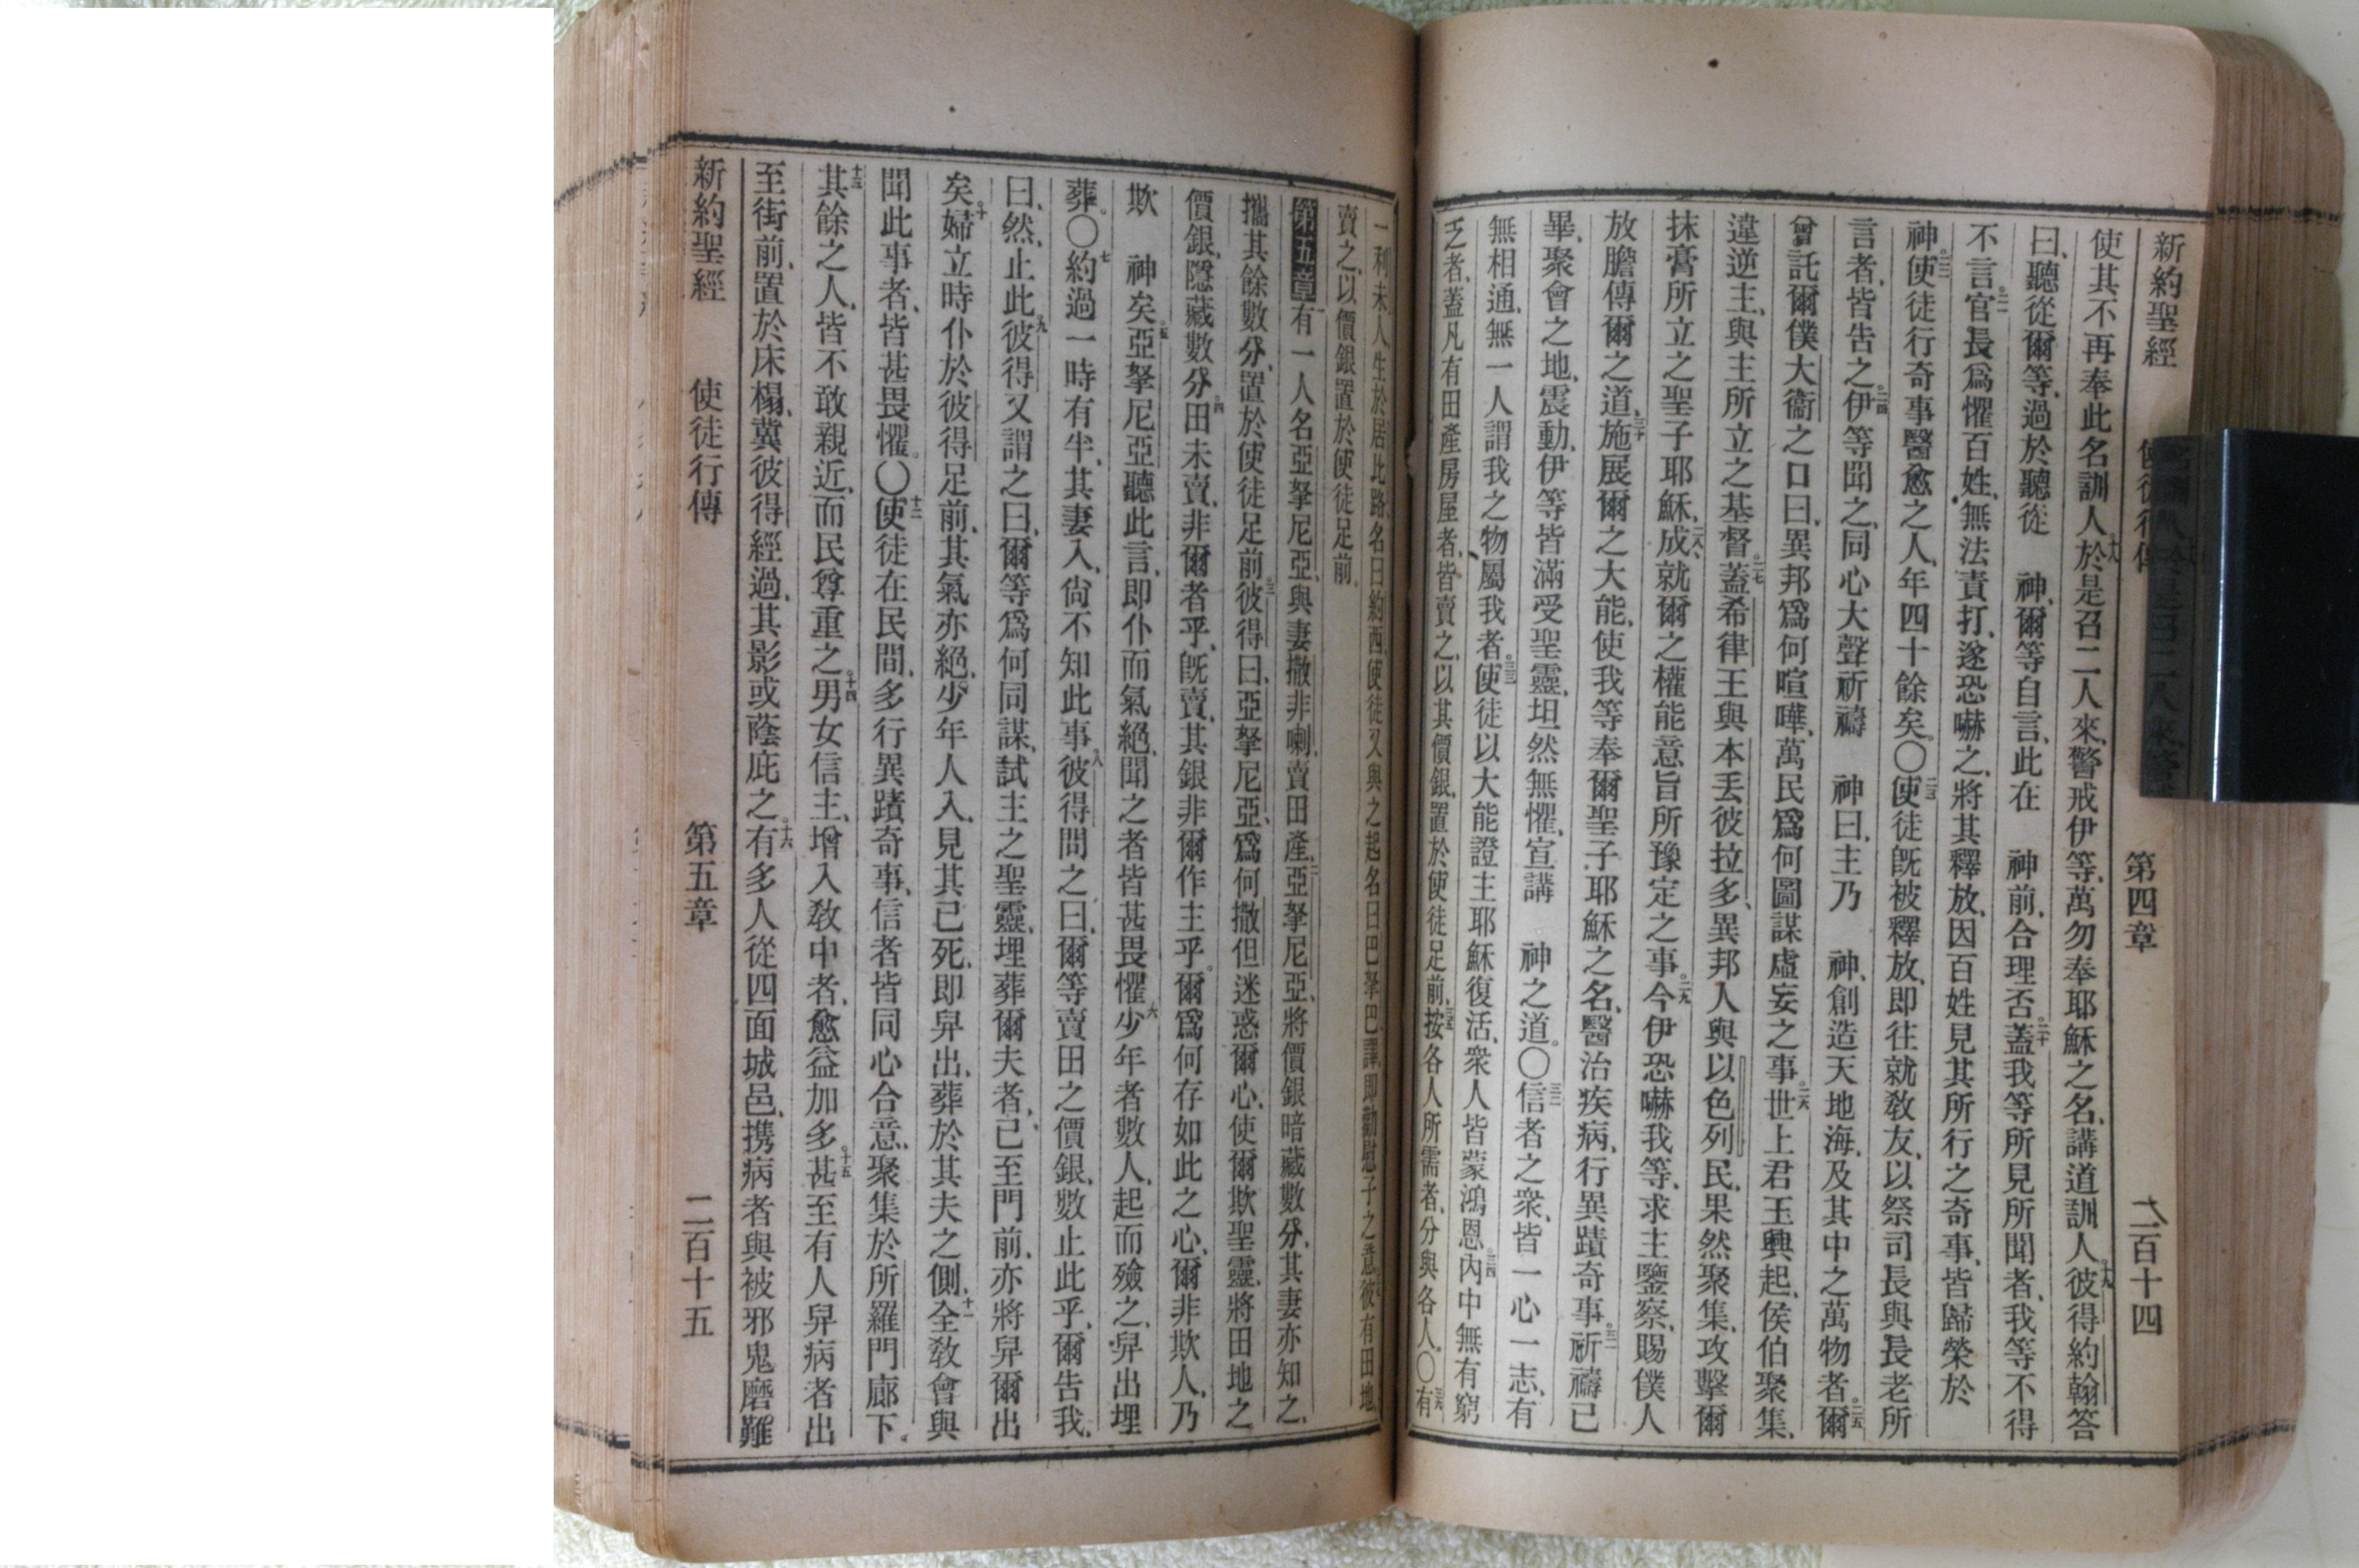 新約聖經 使徒行傳 第四章 二百十四
使其不再奉此名訓人、十八於是召二人來、警戒伊等、萬勿奉耶穌之名、講道訓人。十九彼得約翰答
曰、聽從爾等、過於聽從 神、爾等自言、此在 神前、合理否。二十蓋我等所見所聞者、我等不得
不言。二一官長爲懼百姓、無法責打、遂恐嚇之、將其釋放、因百姓見其所行之奇事、皆歸榮於
神。二二使徒行奇事醫愈之人、年四十餘矣。〇二三使徒旣被釋放、即往就敎友、以祭司長與長老所
言者、皆吿之。二四伊等聞之、同心大聲祈禱 神曰、主乃 神、創造天地海、及其中之萬物者。二五爾
曾託爾僕大衞之口曰、異邦爲何喧嘩、萬民爲何圖謀虛妄之事。二六世上君王興起、侯伯聚集、
違逆主、與主所立之基督。二七蓋希律王與本丟彼拉多、異邦人與以色列民、果然聚集、攻擊爾
抹膏所立之聖子耶穌、二八成就爾之權能意旨所豫定之事。二九今伊恐嚇我等、求主鑒察、賜僕人
放膽傳爾之道、三十施展爾之大能、使我等奉爾聖子耶穌之名、醫治疾病、行異蹟奇事。三一祈禱已
畢、聚會之地、震動、伊等皆滿受聖靈、坦然無懼、宣講 神之道。〇三二信者之衆、皆一心一志、有
無相通、無一人謂我之物屬我者。三三使徒以大能證主耶穌復活、衆人皆蒙鴻恩。三四內中無有窮
乏者、蓋凡有田產房屋者、皆賣之、以其價銀、置於使徒足前、三五按各人所需者、分與各人。〇三六有
一利未人、生於居比路、名曰約西、使徒又與之起名曰巴拏巴、譯、即勸慰子之意、彼有田地、
賣之、以價銀置於使徒足前。
第五章 一有一人名亞拏尼亞、與妻撒非喇、賣田產、二亞拏尼亞、將價銀暗藏數分、其妻亦知之、
攜其餘數分、置於使徒足前。三彼得曰、亞拏尼亞、爲何撒但迷惑爾心、使爾欺聖靈、將田地之
價銀、隱藏數分。四田未賣、非爾者乎、旣賣、其銀非爾作主乎。爾爲何存如此之心、爾非欺人、乃
欺 神矣。五亞拏尼亞聽此言、即仆而氣絕、聞之者皆甚畏懼。六少年者數人、起而殮之、舁出埋
葬。〇七約過一時有半、其妻入、尙不知此事。八彼得問之曰、爾等賣田之價銀、數止此乎、爾吿我、
曰、然、止此。九彼得又謂之曰、爾等爲何同謀、試主之聖靈、埋葬爾夫者、已至門前、亦將舁爾出
矣。十婦立時仆於彼得足前、其氣亦絕。少年人入、見其已死、即舁出、葬於其夫之側、十一全敎會與
聞此事者、皆甚畏懼。〇十二使徒在民間、多行異蹟奇事、信者皆同心合意、聚集於所羅門廊下。
十三其餘之人、皆不敢親近、而民尊重之。十四男女信主、增入敎中者、愈益加多。十五甚至有人舁病者出
至街前、置於床榻、冀彼得經過、其影或蔭庇之。十六有多人從四面城邑、携病者與被邪鬼磨難
新約聖經 使徒行傳 第五章 二百十五